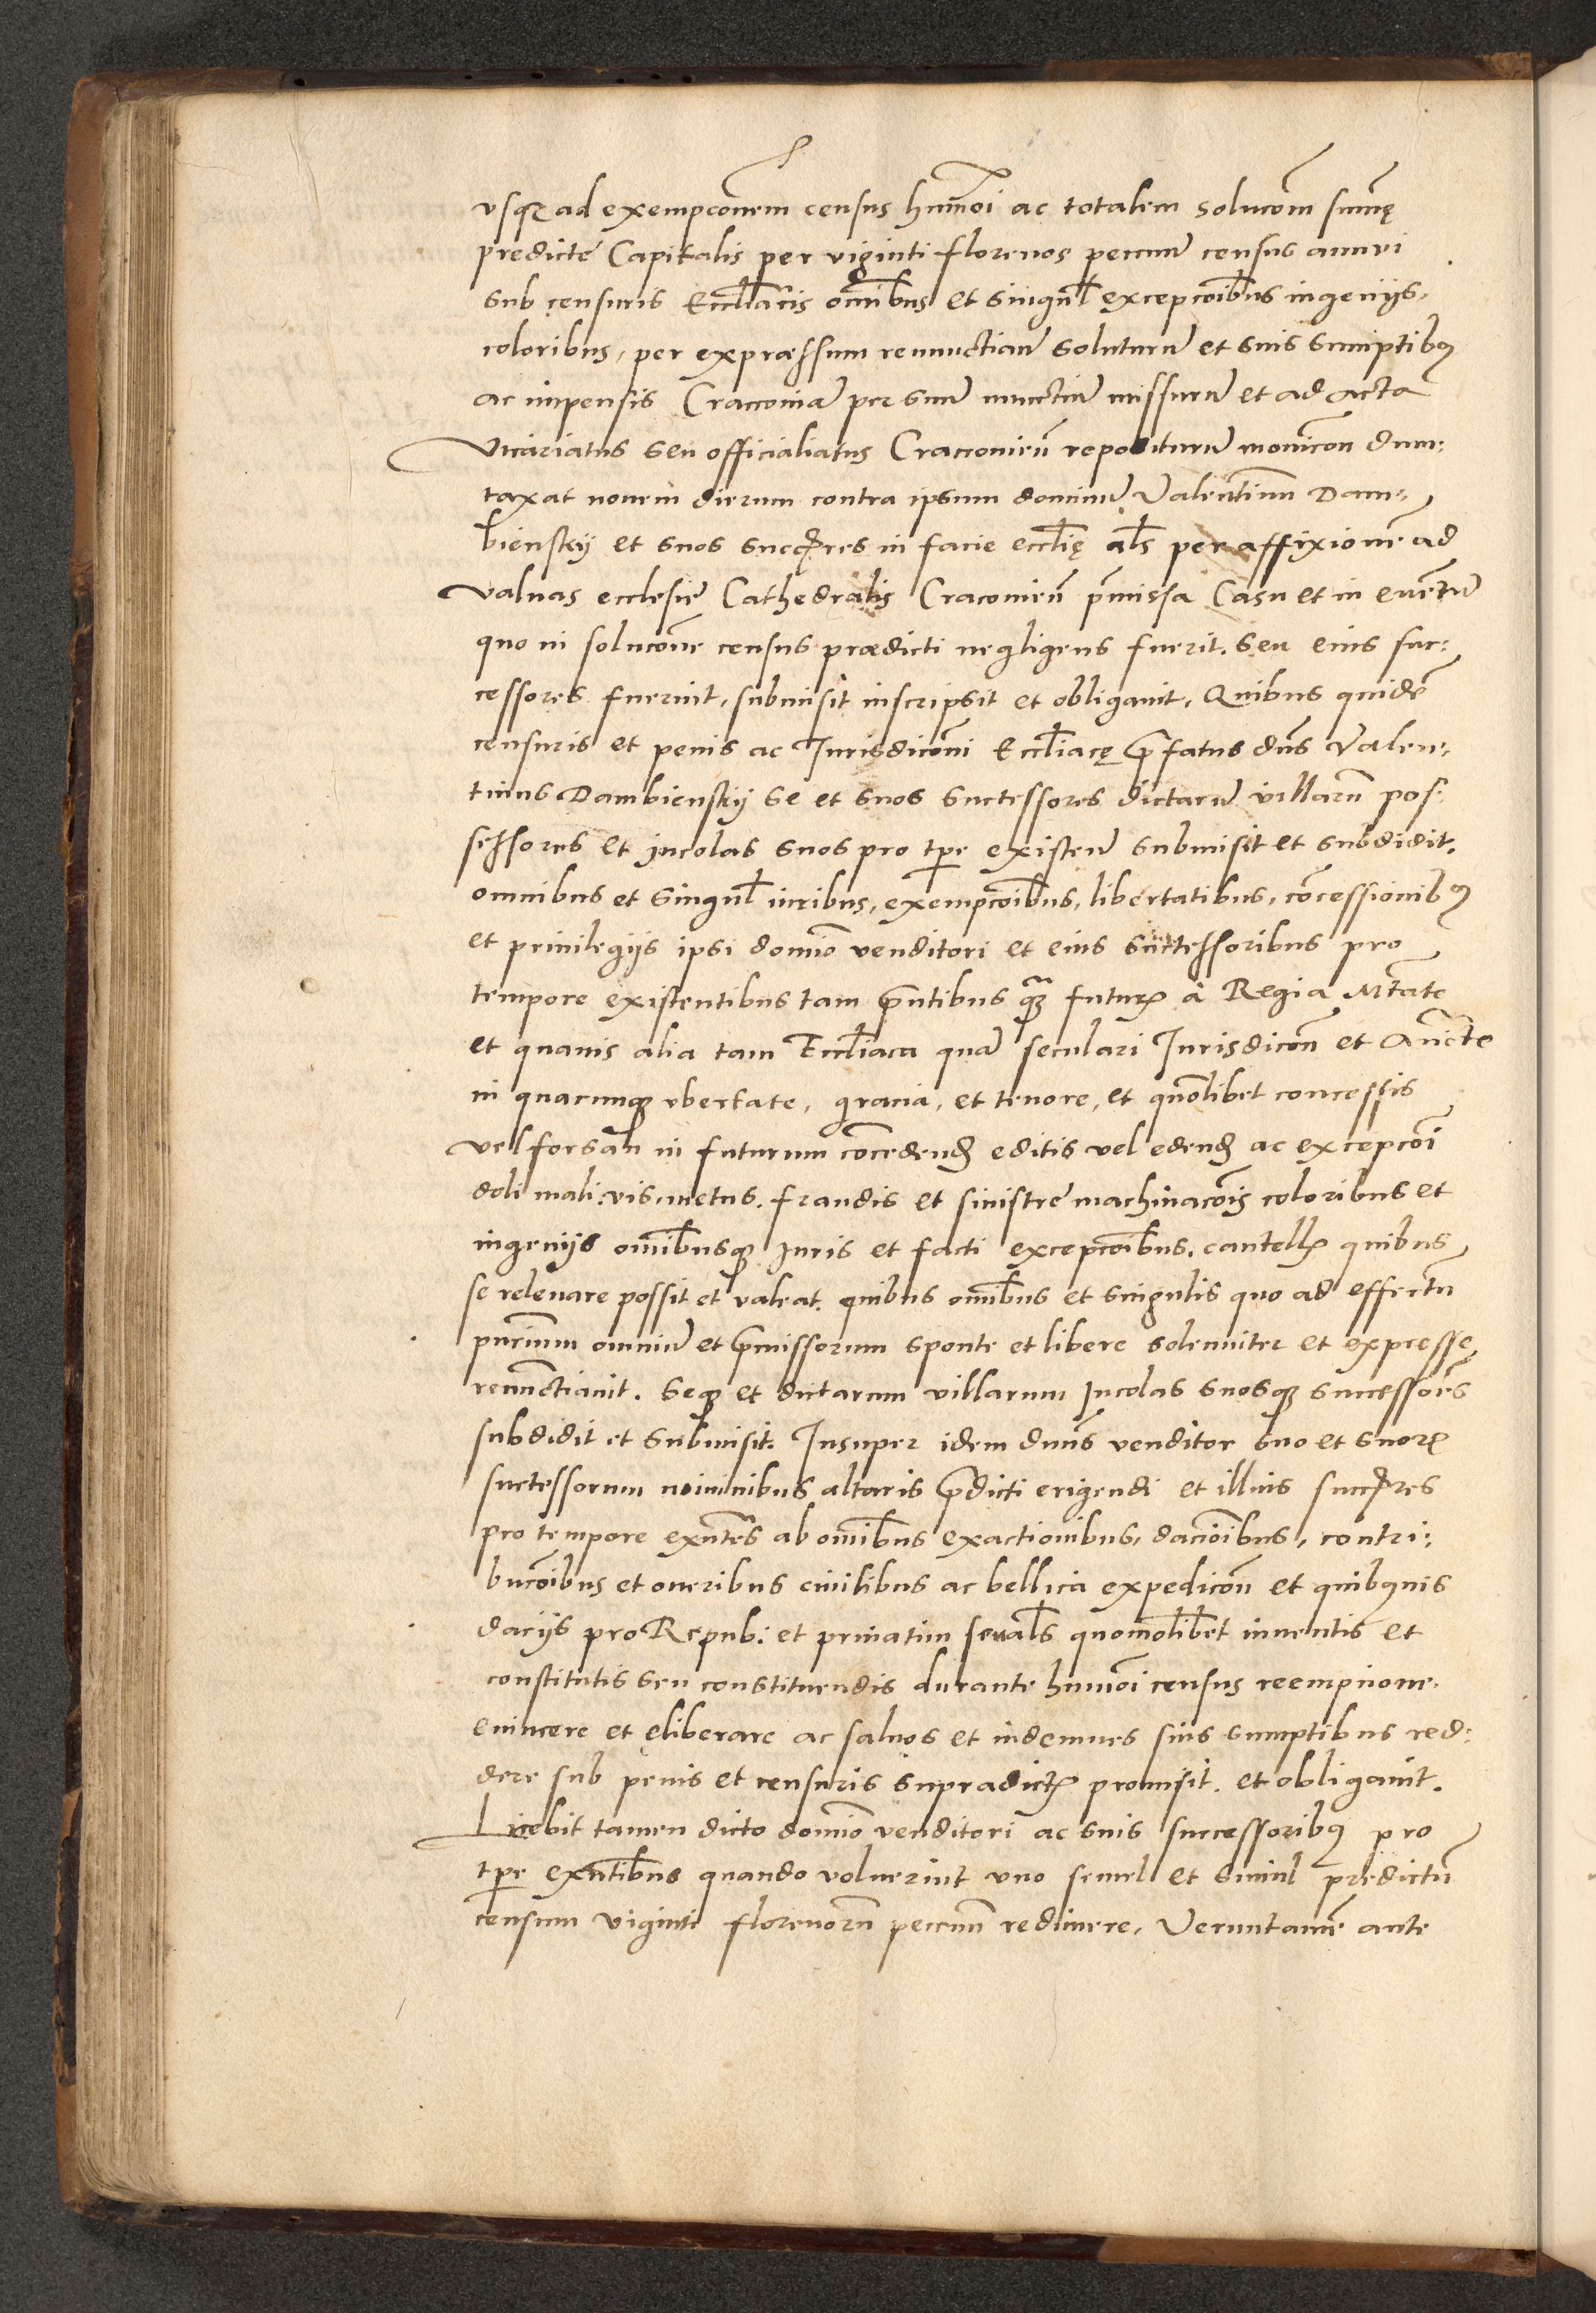 vsqꝫ ad exempcōnem census hmōi ac totalem solucōm sum̄ę
predicte Capitalis per viginti florenos pecun̄ census annui
sub censuris Eccl̄iacis om̄ibus et singul̄ excepcōibus ingenijs,
coloribus, per expræssum renunctian̄ soluturū et suis sumptibꝰ
ac impensis Cracoviā per suū nunctiū missurū et ad acta
Vicariatus seu officialiatus Cracovień repositurū monicōn dum⸗
taxat novem dierum contra ipsum dominū Valentinum Dam⸗
bienskij et suos succ̄res in facie eccl̄ię al̄s per affixionē ad
valvas ecclesie Cathedralis Cracovień p̄missa Casu et in evētū
quo in solucōne census prædicti negligens fuerit. seu eius suc⸗
cessores fuerint, submisit inscripsit et obligauit, Quibus quidē
censuris et penis ac Iurisdicōni Eccl̄iacę p̄fatus dn̄s Valen⸗
tinus Dambienskij se et suos successores dictarū villarū pos⸗
sessores et jncolas suos pro tp̄e existeń submisit et subdidit.
omnibus et singul̄ iuribus, exempcōibus, libertatibus, cōcessionibꝰ
et priuilegijs ipsi domīo venditori et eius successoribus pro
tempore existentibus tam p̄ntibus qꝫ̄ futuꝝ à Regia Mtāte
et quauis alia tam Eccl̄iaca quā seculari Iurisdicōn et Auc̄te
in quacunqꝫ vbertate, gracia, et tenore, et quōlibet concessis
vel forsan in futurum cōcedenđ editis vel edenđ ac excepcōi
doli mali, vis, metus. fraudis et sinistre machinacōis coloribus et
ingenijs om̄ibusqꝫ juris et facti excepcōibus, cautell̄ quibus
se releuare possit et valeat. quibus om̄ibus et singulis quo ad effectū
p̄ncium omniū et p̄missorum sponte et libere solenniter et expresse
renunctiauit. Seqꝫ et dictarum villarum jncolas suosqꝫ successores
subdidit et submisit. Insuper idem dn̄us venditor suo et suoꝝ
successorum nominibus altaris p̄dicti erigendi et illius succ̄res
pro tempore exn̄tes ab om̄ibus exactionibus, daciōibus, contri⸗
bucōibus et oneribus ciuilibus ac bellica expedicōn et quibꝰuis
dacijs pro Repub: et priuatim seu al̄s quomōlibet inuentis et
constitutis seu constituendis durante hmōi census reempcione.
euincere et eliberare ac saluos et indemnes suis sumptibus red⸗
dere sub penis et censuris supradict̄ promisit. et obligauit.
Licebit tamen dicto domīo venditori ac suis successoribꝰ pro
tp̄e exn̄tibus quando voluerint vno semel et simul predictū
censum viginti florenorū pecun̄ redimere, Veruntamē ante